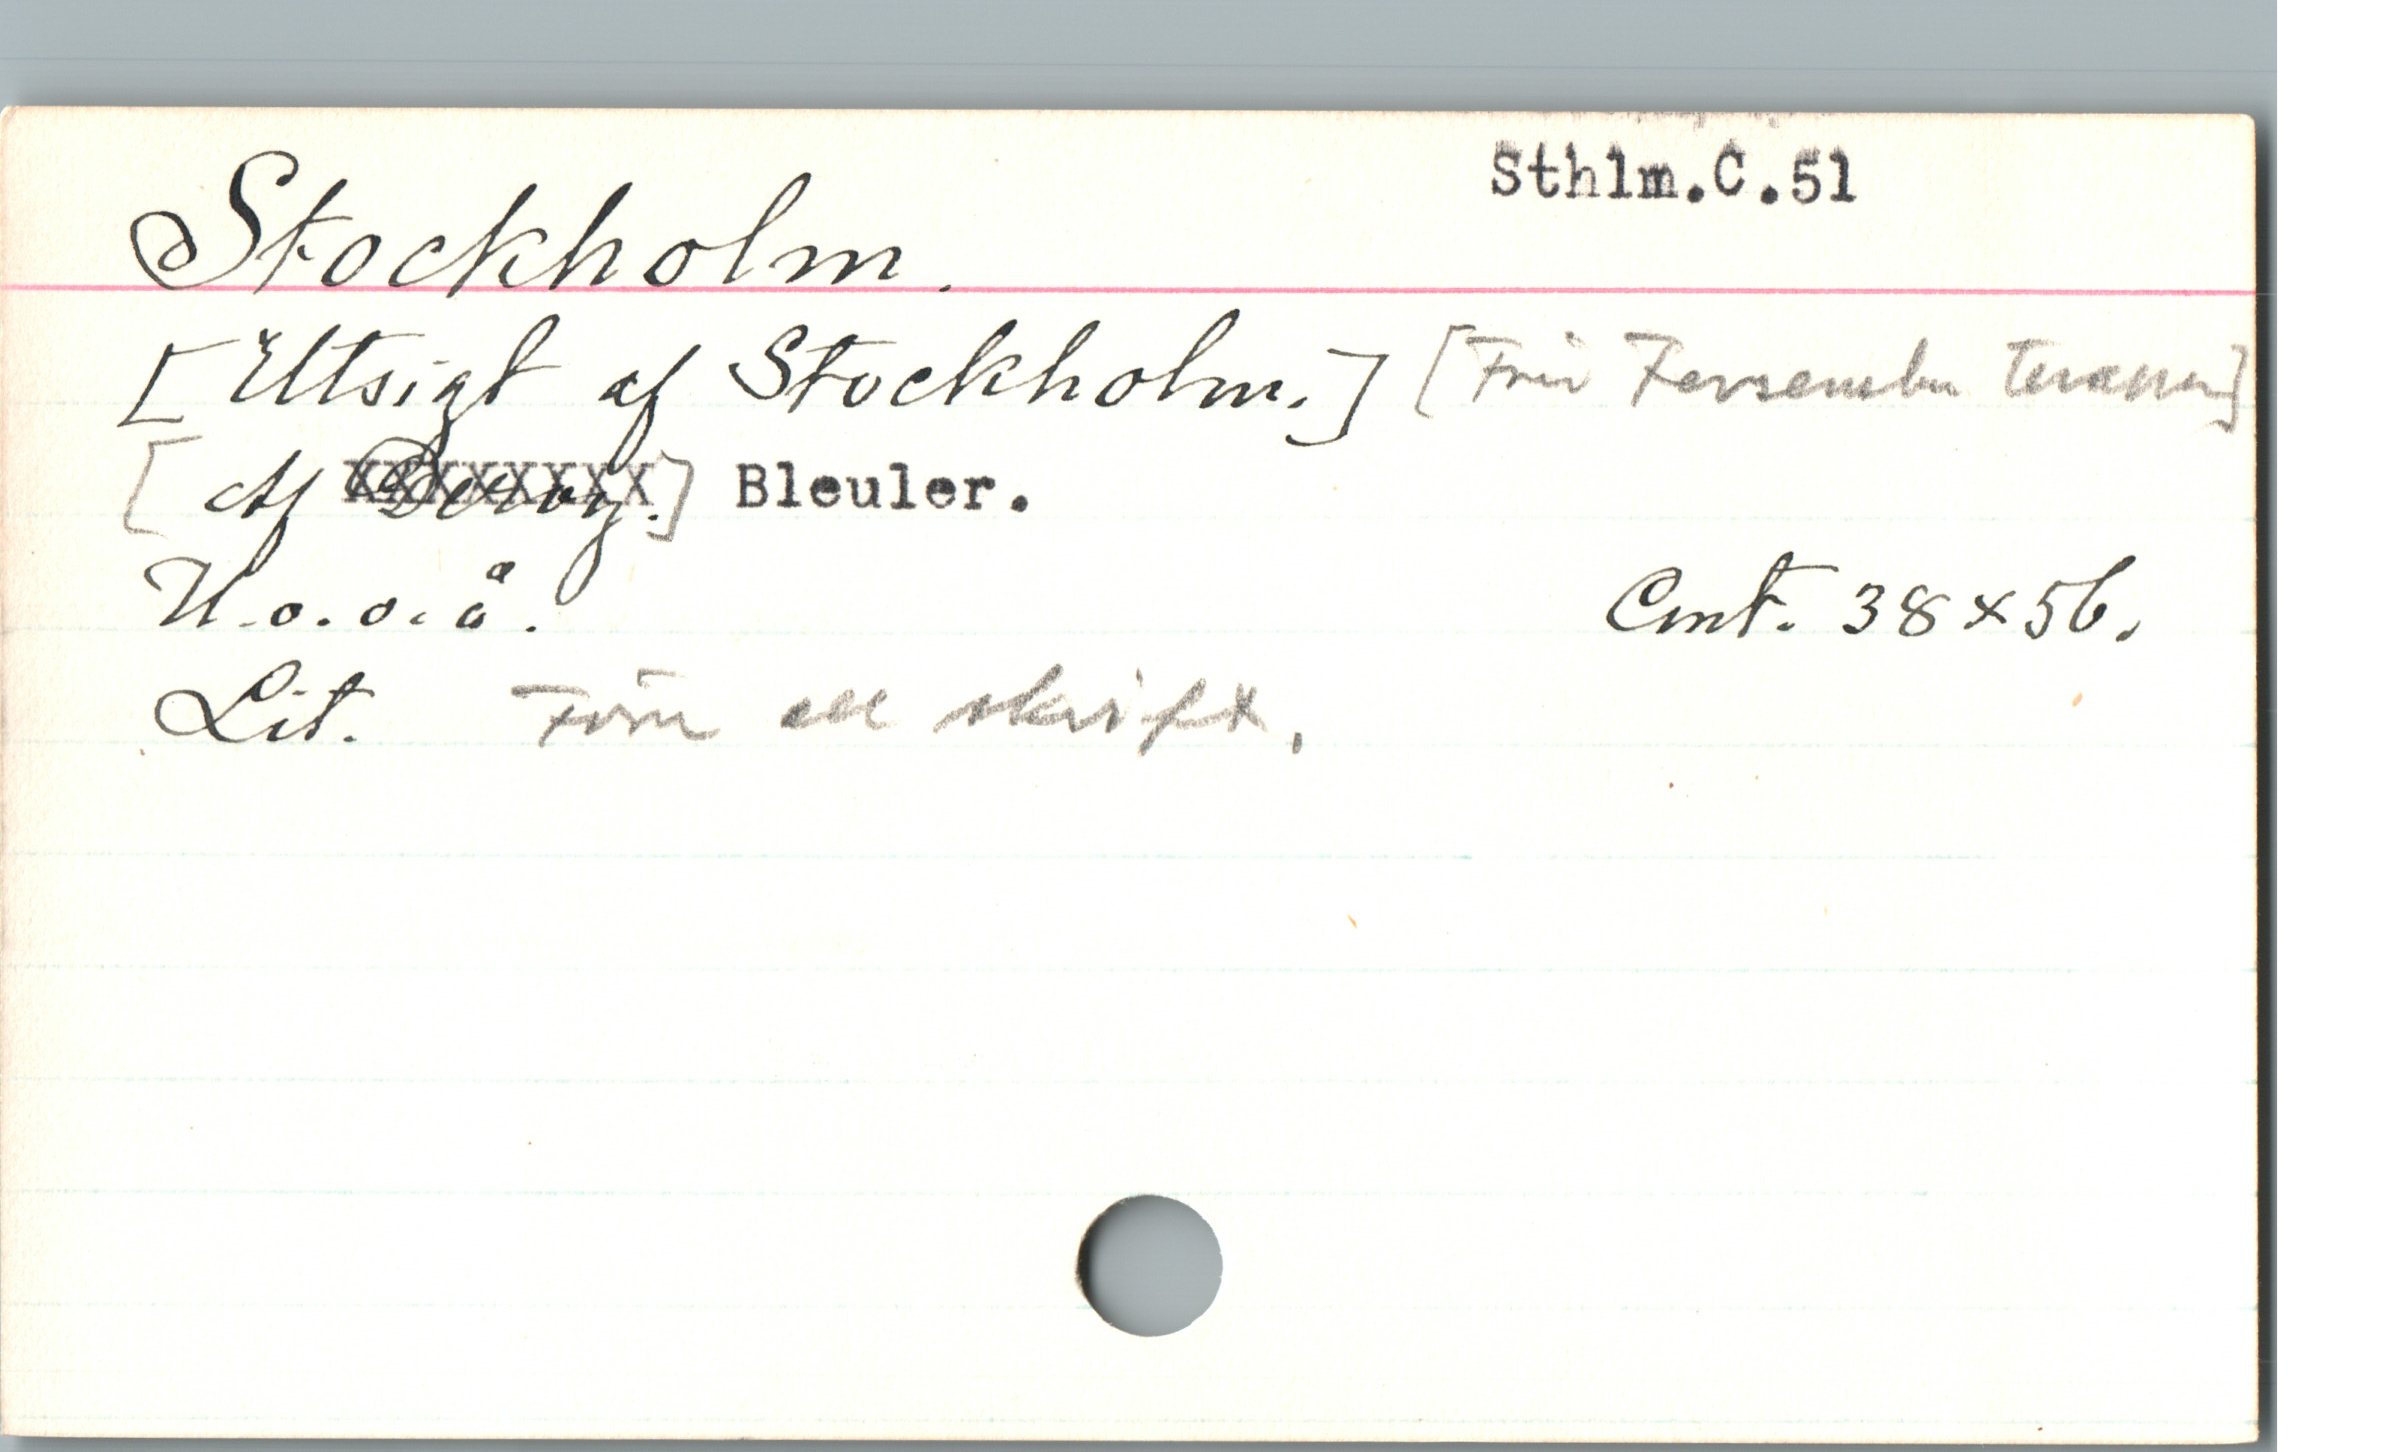 Sthlm.C.51
Stockholm.
[Utsigt af Stockholm.] [Från Fersenska terassen]
[Af] Bleuler.
U.o.o.å. Cmt. 38 x 56.
Lit. Före all skrift.